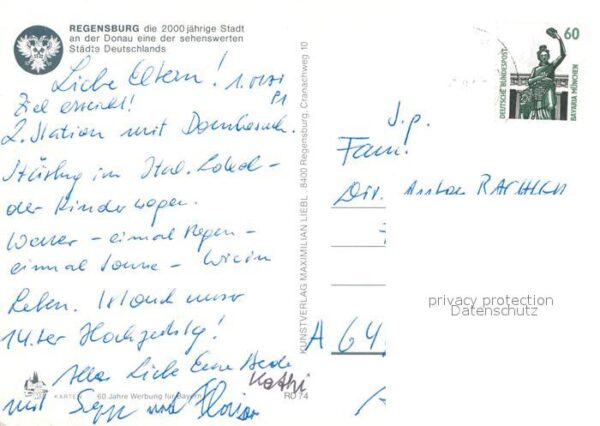 REGENSBURG die 2000 jährige Stadt
an der Donau eine der sehenswerten
Städte Deutschlands
Liebe Eltern!
Ziel erreicht!
2. Station mit Dombesuch.
im Ital. Lokal -
der Kinderwagen.
Wetter - einmal Regen -
einmal Sonne - wie im
Leben. Ist auch unser
14.ter Hochzeitstag!
Alles Liebe Eure
Kathi
mit Sepp und Florian
KARTEN 60 Jahre Werbung für Bayern
RO 74
KUNSTVERLAG MAXIMILIAN LIEBL 8400 Regensburg, Cranachweg 10
60
DEUTSCHE BUNDESPOST
BAVARIA MÜNCHEN
Fam.
Dir. Anton
privacy protection
Datenschutz
A 64